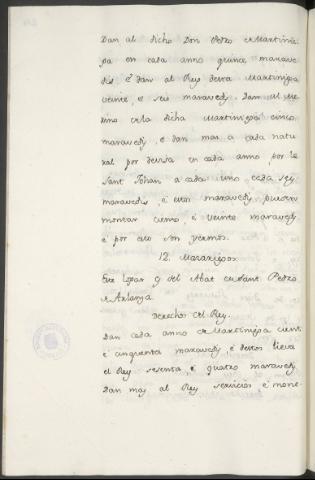 Dan al dicho Don Pedro en Martinie-
ga en cada anno quince marave-
dis, é dan al Rey desta Martiniega
veinte, e seis maravedis. Dan al Me-
rino de la dicha Martiniega cinco
maravedis, e dan mas a cada natu-
ral por devisa en cada anno, por le
Sant Johan a cada uno, cada sey
maravedis, é estos maravedis pueden
montar ciento é veinte maravedis
é por esto son yermos.
12. Mazariegos.
Este logar es del Abat de Sant Pedro
de Arlanza.
Derechos del Rey.
Dan cada anno de Martiniega cient
é cinquenta maravedis, é destos lieva
el Rey sesenta, é quatro maravedis.
Dan mas al Rey servicios, é mone-